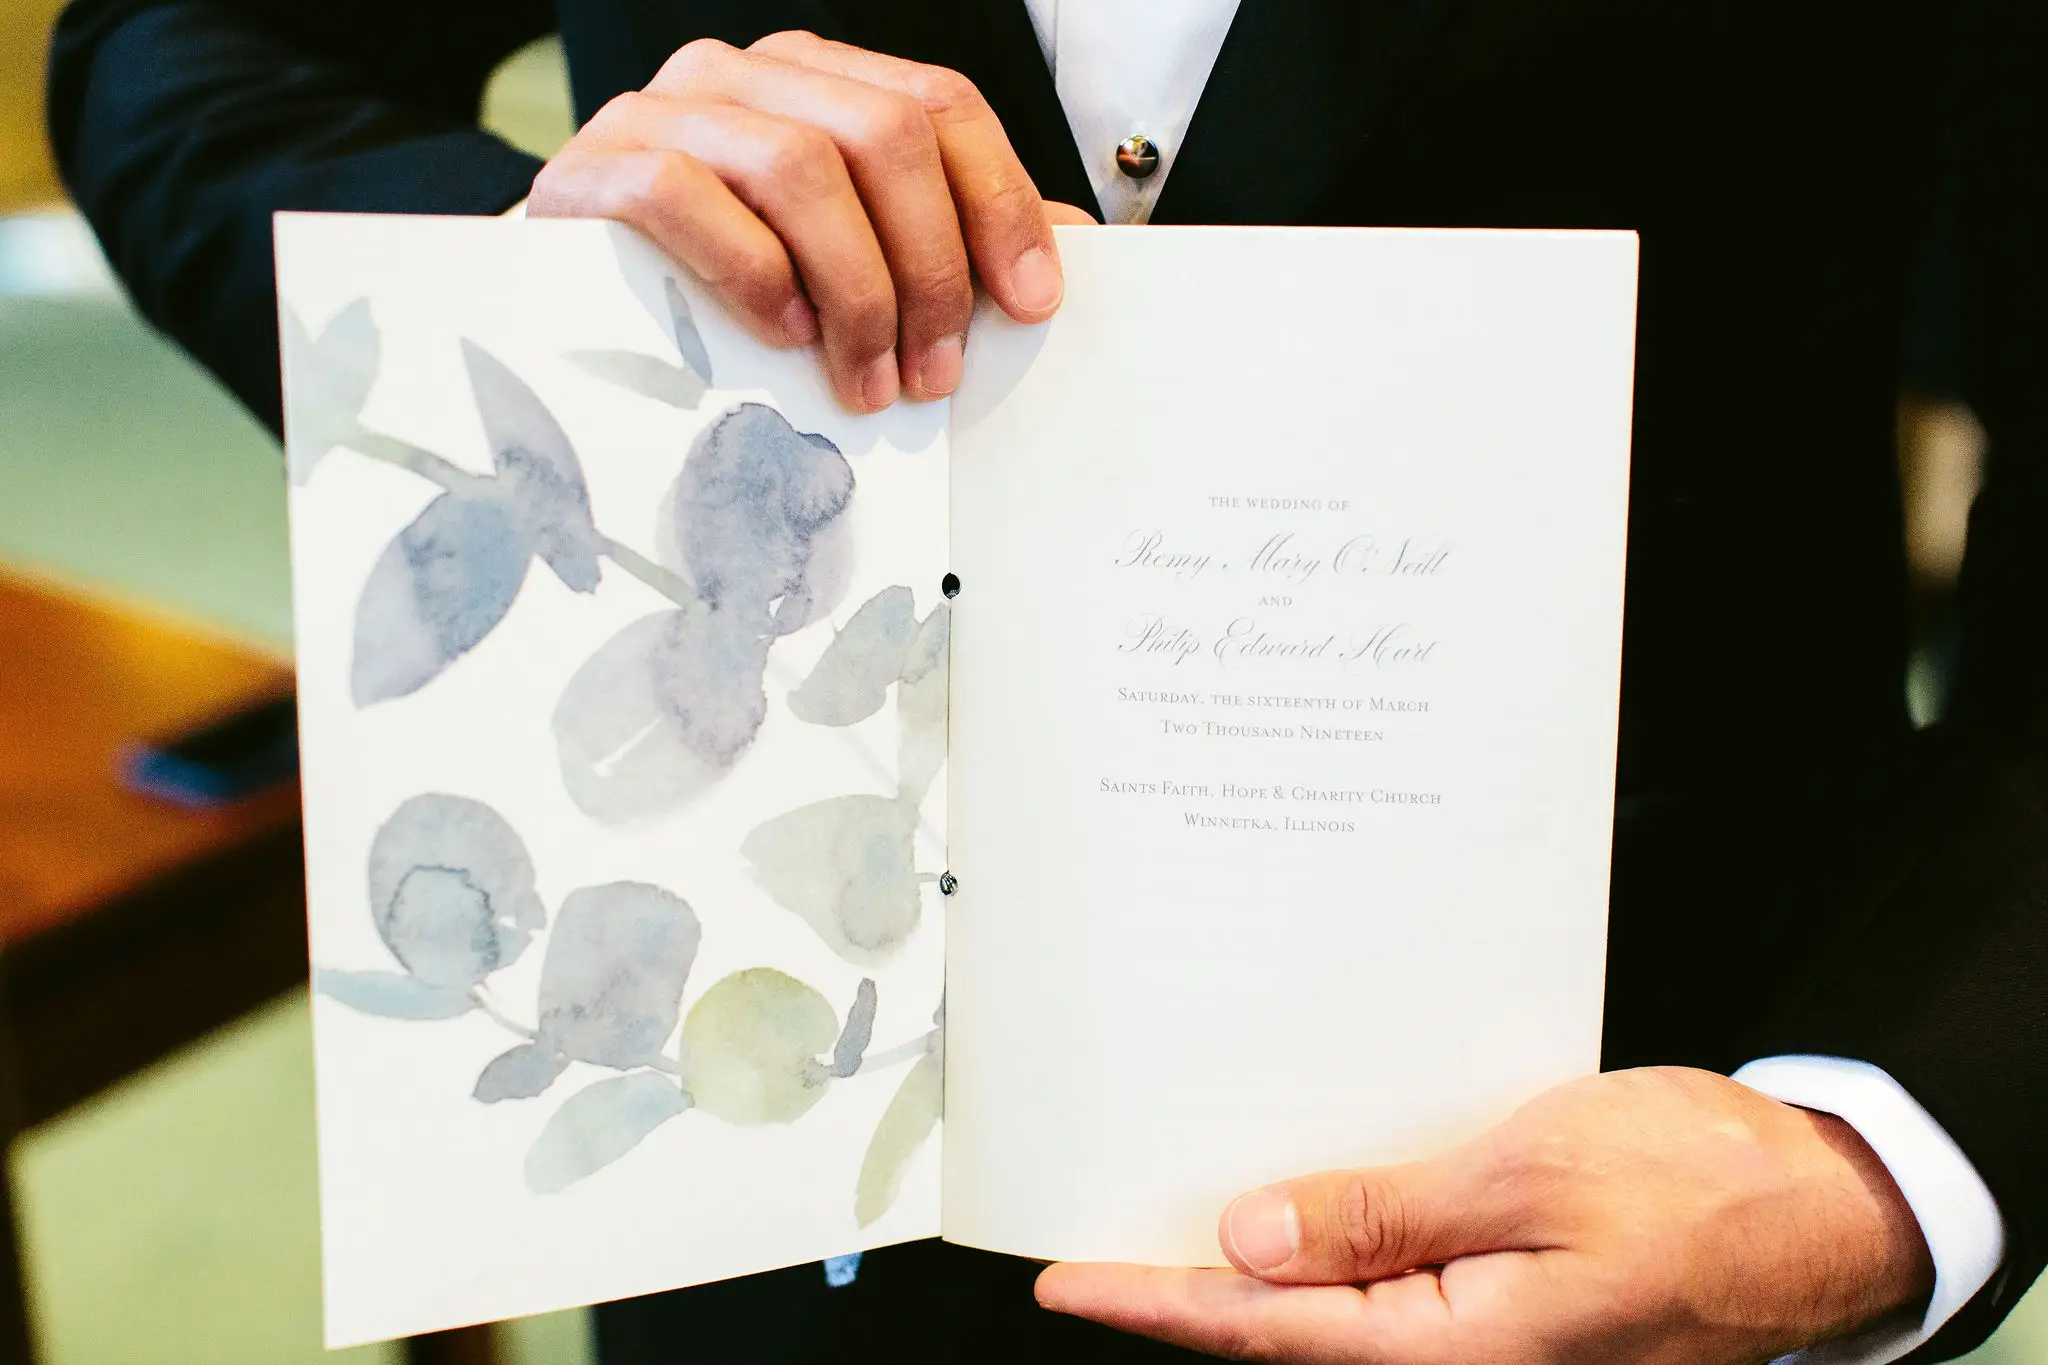 THE WEDDING OF
Remy Mary O'Neill
AND
Philip Edward Hart
SATURDAY, THE SIXTEENTH OF MARCH
TWO THOUSAND NINETEEN
SAINTS FAITH, HOPE & CHARITY CHURCH
WINNETKA, ILLINOIS